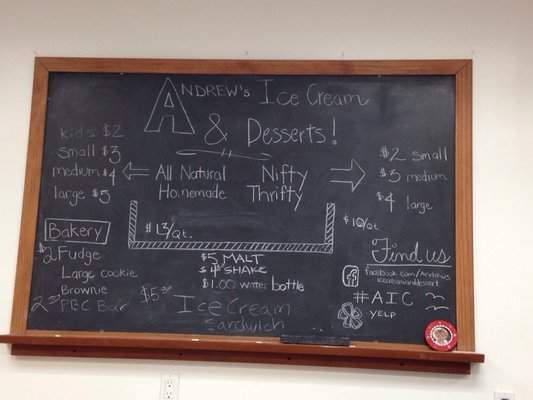 ANDREW'S Ice Cream
& Desserts!
kids $2
small $3
medium $4
large $5
All Natural
Homemade
Nifty
Thrifty
$2 small
$3 medium
$4 large
$13/Qt.
$10/Qt
Bakery
$2 Fudge
Large cookie
Brownie
PBC Bar
$5 MALT
$4 SHAKE
$1.00 water bottle
$5 Ice Cream
Sandwich
Find us
facebook.com/Andrews
icecreamanddessert
#AIC
YELP